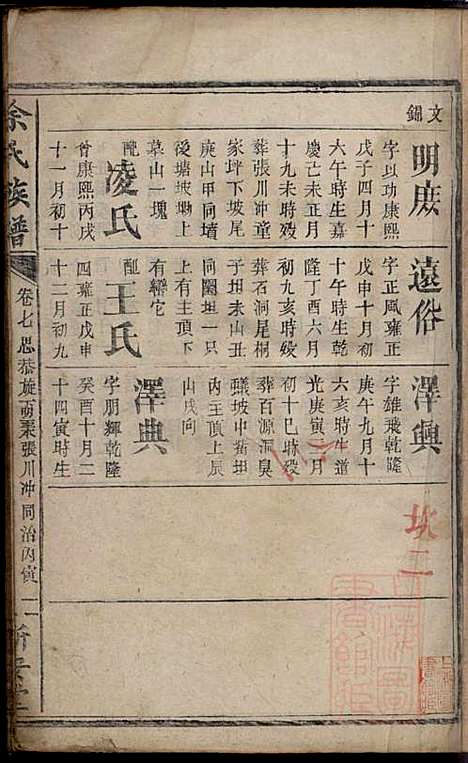 文錦
明庶
字以功康熙
戊子四月十
六午時生嘉
慶己未正月
十九未時歿
葬張川冲童
家坪下坡尾
庚山甲同墳
後塘坡坳上
墓山一塊
配
凌氏
曾康熙丙戌
十一月初十
遠俗
字正風雍正
戊申十月初
十午時生乾
隆丁酉六月
初九亥時歿
葬石洞尾桐
子坦未山丑
向闊坦一只
上有主頂下
有巒它
配
王氏
四雍正戊申
十二月初九
澤興
字雄飛乾隆
庚午九月十
六亥時生道
光庚寅三月
初十巳時歿
葬百源洞臭
蟻坡中猪坦
內王頂上辰
山戌向
澤典
字朋輝乾隆
癸酉十月二
十四寅時生
坎二
余氏族譜
卷七思恭旋西秉張川冲
同治丙寅
二
新安堂